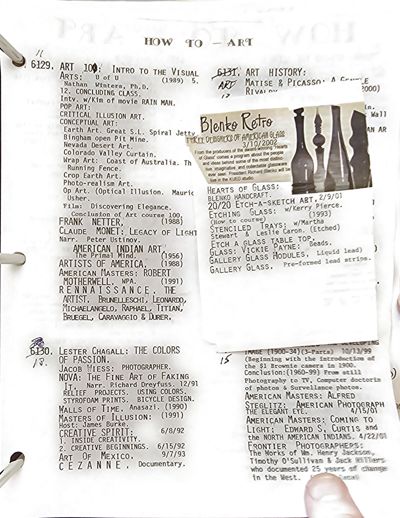 HOW TO - ART
11
6129. ART 100: INTRO TO THE VISUAL
ARTS: U of U (1989) 5.
Nathan Wintera, Ph.D.
12. CONCLUDING CLASS.
Intv. w/Kim of movie RAIN MAN.
POP ART:
CRITICAL ILLUSION ART.
CONCEPTUAL ART:
Earth Art. Great S.L. Spiral Jetty
Bingham open Pit Mine.
Nevada Desert Art.
Colorado Valley Curtain.
Wrap Art: Coast of Australia. Th
Running Fence.
Crop Earth Art.
Photo-realism Art.
Op Art. (Optical Illusion. Mauric
Usher.
Film: Discovering Elegance.
Conclusion of Art course 100,
FRANK NETTER, (1988)
CLAUDE MONET: LEGACY OF LIGHT
Narr. Peter Ustinov.
AMERICAN INDIAN ART,
The Primal Mind. (1956)
ARTISTS OF AMERICA. (1988)
AMERICAN MASTERS: ROBERT
MOTHERWELL, WPA. (1991)
RENNAISSANCE, THE
ARTIST. BRUNELLESCHI, LEONARDO,
MICHAELANGELO, RAPHAEL, TITIAN,
BRUEGEL, CARAVAGGIO & DURER.
6130. LESTER CHAGALL: THE COLORS
OF PASSION.
JACOB WIESS: PHOTOGRAPHER.
NOVA: THE FINE ART OF FAKING
IT. Narr. Richard Dreyfuss. 12/91
RELIEF PROJECTS. USING COLORS.
STYROFOAM PRINTS. BICYCLE DESIGN.
WALLS OF TIME. Anasazi. (1990)
MASTERS OF ILLUSION: (1991)
Host: James Burke.
CREATIVE SPIRIT: 6/8/92
1. INSIDE CREATIVITY.
2. CREATIVE BEGINNINGS. 6/15/92
ART OF MEXICO. 9/7/93
CEZANNE, Documentary.
6131. ART HISTORY:
MATISE & PICASSO: A GENTLE
RIVALRY
Blenko Retro
THREE DESIGNERS OF AMERICAN GLASS
3/10/2002
From the producers of the award winning "Hearts
of Glass" comes a program about the people
and ideas behind some of the most distinc-
tive, imaginative, and collectable glassware
ever seen. President Richard Blenko will be
live in the KUED studio.
HEARTS OF GLASS:
BLENKO HANDCRAFT.
20/20 ETCH-A-SKETCH ART, 2/9/01
ETCHING GLASS: w/Kerry Pierce.
(How to course) (1993)
STENCILED TRAYS: w/Martha
Stewart & Leslie Caron. (Etched)
ETCH A GLASS TABLE TOP.
GLASS: VICKIE PAYNE: Beads.
GALLERY GLASS MODULES. Liquid lead)
GALLERY GLASS. Pre-formed lead strips.
15
IMAGE (1900-34)(3-Parts) 10/13/99
Beginning wit: the introduction of
the $1 Brownie camera in 1900.
Conclusion:(1960-99) From still
Photography to TV, Computer doctoring
of photos & Surveilance photos.
AMERICAN MASTERS: ALFRED
STEGLITZ: AMERICAN PHOTOGRAPH
THE ELEGANT EYE. 4/15/01
AMERICAN MASTERS: COMING TO
LIGHT: EDWARD S. CURTIS and
the NORTH AMERICAN INDIANS. 4/22/01
FRONTIER PHOTOGRAPHERS:
The Works of Wm. Henry Jackson,
Timothy O'Sullivan & Jack Hillers
who documented 25 years of change
in the West.